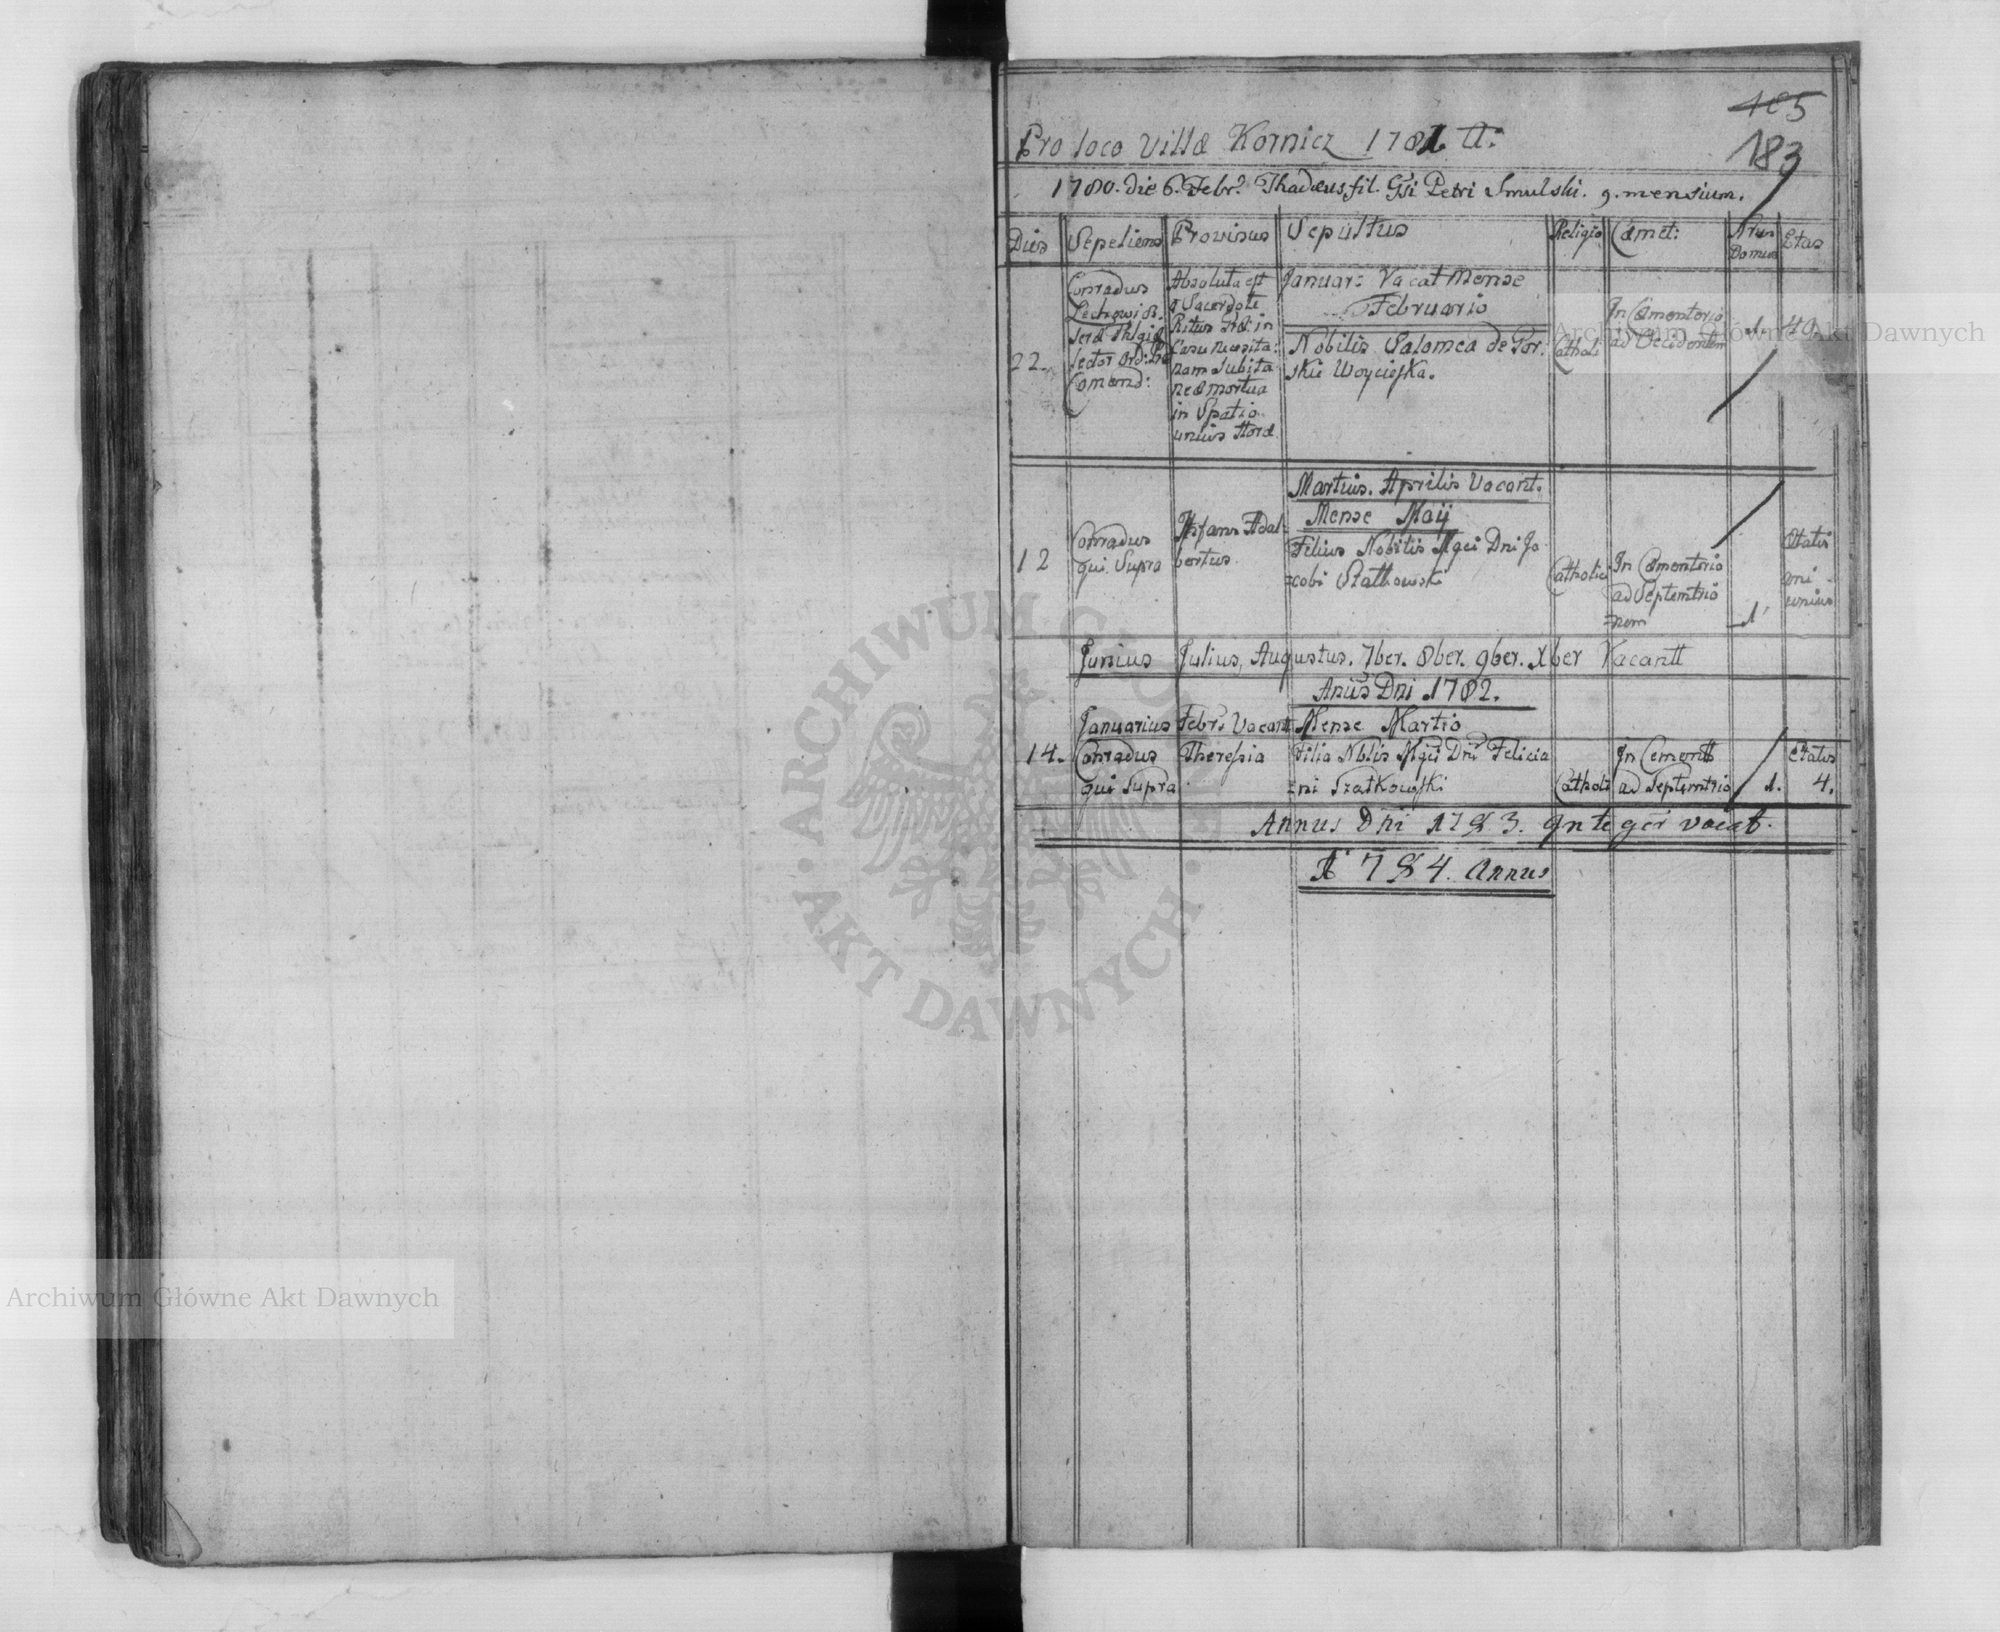 405
183
Pro loco Villæ Kornicz 1781 A:
1780. die 6. Febr. Thadæus fil. Gsi Petri Smulski. 9. mensium.
Dies Sepeliens Provisus Sepultus Religio Cæmet: Nrus Domus Etas
22.
Conradus
Comend:
Absoluta est
a Sacerdote
Ritus Græ: in
Casu necessita:
nam Subita
neæ mortua
in Spatio
unius Horæ
Januar: Vacat Mense
Februario
Nobilis Salomea de Gor.
skie Woyciejska.
Catholi
In Cæmenterio
ad Occidentem
1.
40.
Martius. Aprilis Vacant.
Mense Maij
12
Conradus
qui Supra
Infans Adal=
bertus.
Filius Nobilis Mgci Dni Ja
=cobi Szatkowski
Catholic
In Cæmenterio
ad Septemtrio
=nem
1
Etatis
ani
unius
Junius Julius, Augustus. 7ber. 8ber. 9ber. Xber Vacantt
Anus Dni 1782.
Januarius Febr: Vacant Mense Martio
14.
Conradus
qui Supra
Theresia
Filia Nblis Mgci Dni Felicia
=ni Szatkowski
Catholi
In Cementt
ad Septemtrio
1.
Etatis
4.
Annus Dni 1783. Integer vacat.
1784. Annus
ARCHIWUM GŁÓWNE
AKT DAWNYCH
Archiwum Główne Akt Dawnych
Archiwum Główne Akt Dawnych